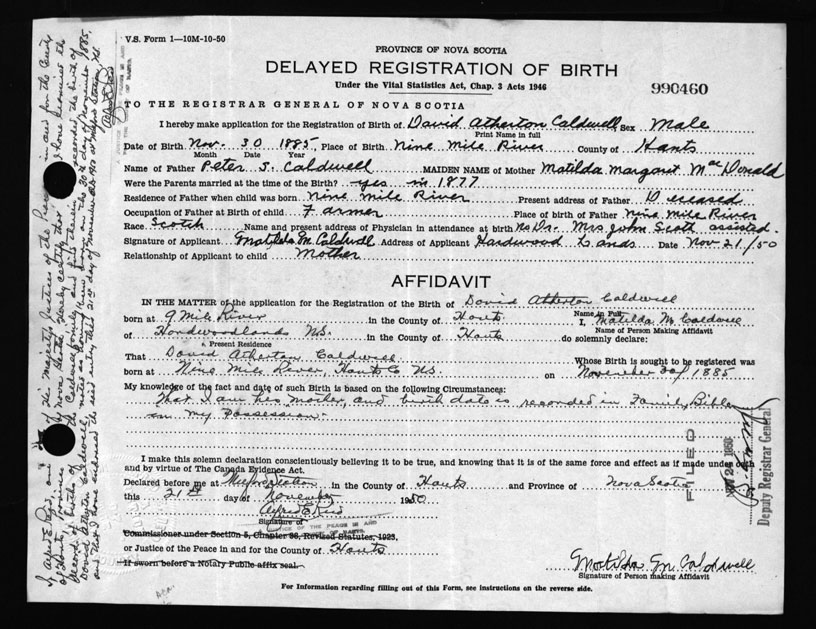 V.S. Form 1—10M-10-50
PROVINCE OF NOVA SCOTIA
DELAYED REGISTRATION OF BIRTH
Under the Vital Statistics Act, Chap. 3 Acts 1946
990460
TO THE REGISTRAR GENERAL OF NOVA SCOTIA
I hereby make application for the Registration of Birth of David Atherton Caldwell Sex Male
Print Name in full
Date of Birth Nov. 30 1885 Place of Birth Nine Mile River County of Hants
Month Date Year
Name of Father Peter S. Caldwell MAIDEN NAME of Mother Matilda Margaret McDonald
Were the Parents married at the time of Birth? yes in 1877
Residence of Father when child was born Nine Mile River Present address of Father Deceased
Occupation of Father at Birth of child Farmer Place of birth of Father Nine Mile River
Race Scotch Name and present address of Physician in attendance at birth No Dr. Mrs John Scott assisted.
Signature of Applicant Matilda M Caldwell Address of Applicant Hardwood Lands Date Nov 21/50
Relationship of Applicant to child Mother
AFFIDAVIT
IN THE MATTER of the application for the Registration of the Birth of David Atherton Caldwell
Name in Full
born at 9 Mile River in the County of Hants I, Matilda M Caldwell
Name of Person Making Affidavit
of Hardwoodlands NS. in the County of Hants do solemnly declare:
Present Residence
That David Atherton Caldwell Whose Birth is sought to be registered was
born at Nine Mile River, Hants Co NS. on November 30/1885
My knowledge of the fact and date of such Birth is based on the following Circumstances:
That I am his Mother, and birth date is recorded in Family Bible
in my possession.
I make this solemn declaration conscientiously believing it to be true, and knowing that it is of the same force and effect as if made under oath
and by virtue of The Canada Evidence Act.
Declared before me at Milford Station in the County of Hants and Province of Nova Scotia
this 21st day of November 1950
Alfred E Reid
Signature of
JUSTICE OF THE PEACE IN AND
Commissioner under Section 5, Chapter 36, Revised Statutes, 1923,
or Justice of the Peace in and for the County of Hants
If sworn before a Notary Public affix seal.
Matilda M Caldwell
Signature of Person making Affidavit
For Information regarding filling out of this Form, see instructions on the reverse side.
FILED
Deputy Registrar General